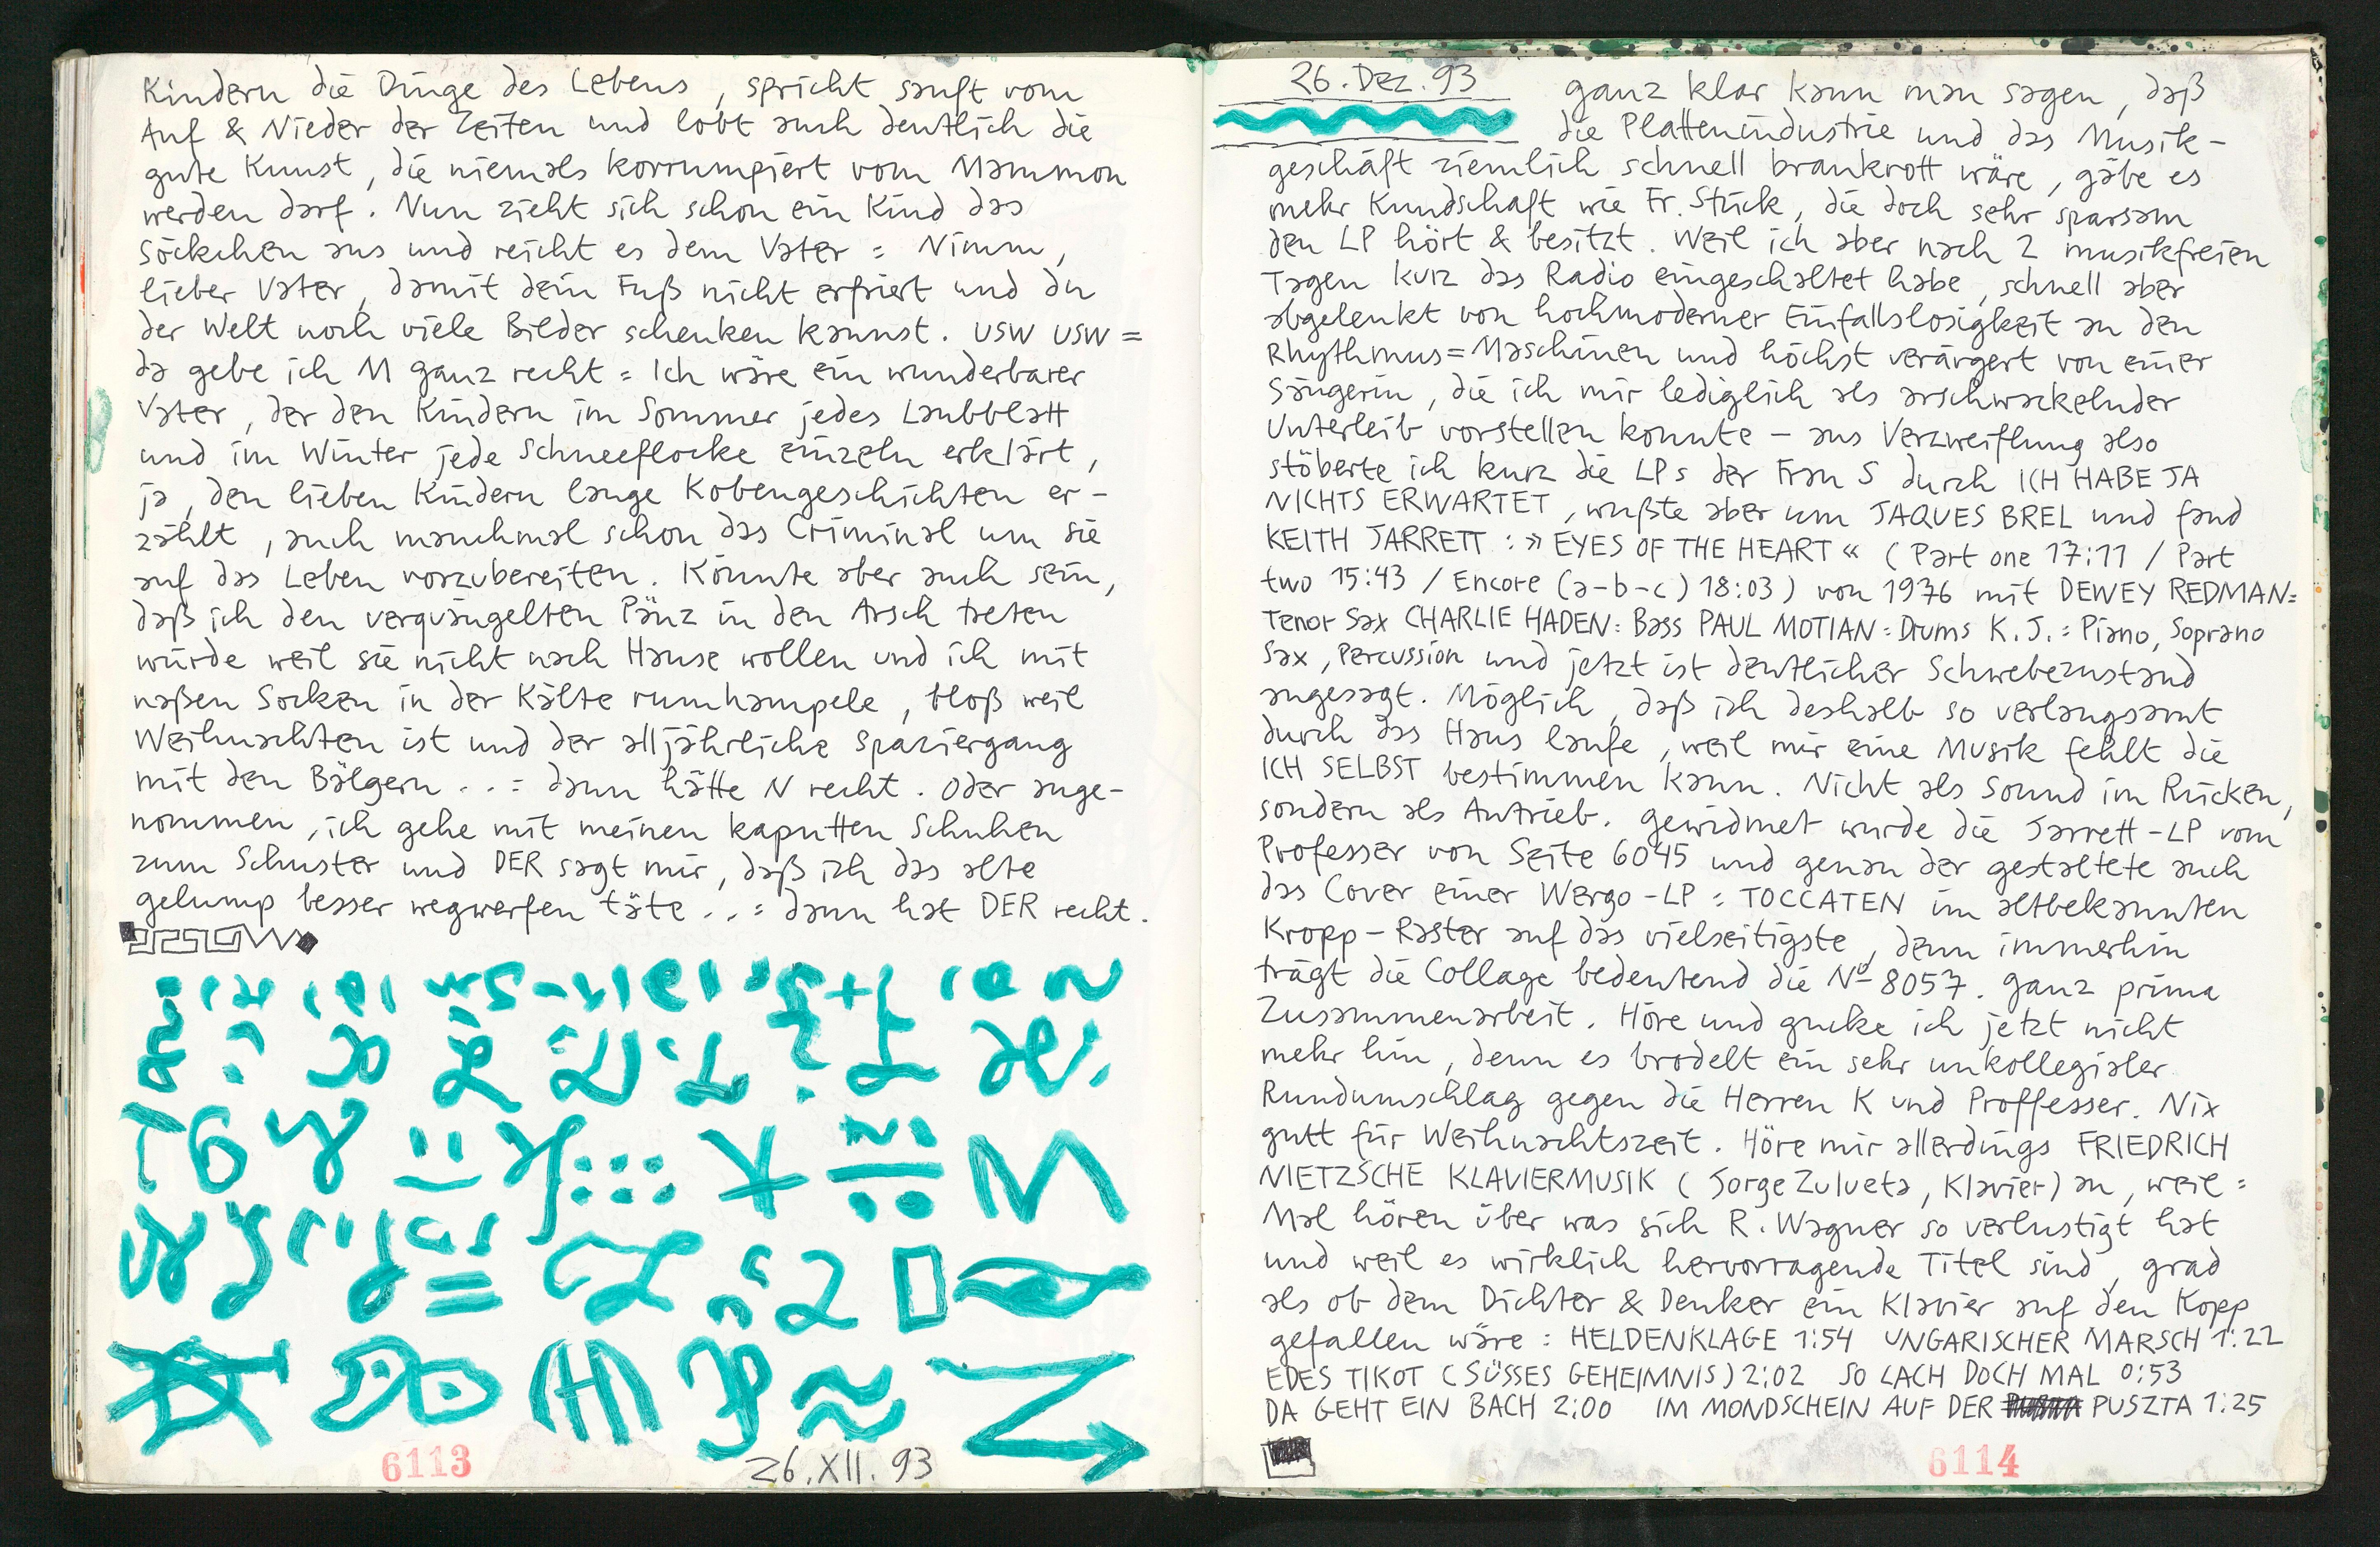 Kindern die Dinge des Lebens, spricht sanft vom
Auf & Nieder der Zeiten und lobt auch deutlich die
gute Kunst, die niemals korrumpiert vom Mammon
werden darf. Nun zieht sich schon ein Kind das
Söckchen aus und reicht es dem Vater = Nimm,
lieber Vater, damit dein Fuß nicht erfriert und du
der Welt noch viele Bilder schenken kannst. USW USW =
da gebe ich M ganz recht = Ich wäre ein wunderbarer
Vater, der den Kindern im Sommer jedes Laubblatt
und im Winter jede Schneeflocke einzeln erklärt,
ja, den lieben Kindern lange Kobengeschichten er-
zählt, auch manchmal schon das Criminal um sie
auf das Leben vorzubereiten. Könnte aber auch sein,
daß ich den verquängelten Pänz in den Arsch treten
würde weil sie nicht nach Hause wollen und ich mit
naßen Socken in der Kälte rumhampele, bloß weil
Weihnachten ist und der alljährliche Spaziergang
mit den Bälgern ... = dann hätte N recht. Oder ange-
nommen, ich gehe mit meinen kaputten Schuhen
zum Schuster und DER sagt mir, daß ich das alte
gelump besser wegwerfen täte ... = dann hat DER recht.
6113
26.XII.93
26.DEZ.93
ganz klar kann man sagen, daß
die Plattenindustrie und das Musik-
geschäft ziemlich schnell brankrott wäre, gäbe es
mehr Kundschaft wie Fr. Stück, die doch sehr sparsam
den LP hört & besitzt. Weil ich aber nach 2 musikfreien
Tagen kurz das Radio eingeschaltet habe, schnell aber
abgelenkt von hochmoderner Einfallslosigkeit an den
Rhythmus=Maschinen und höchst verärgert von einer
Sängerin, die ich mir lediglich als arschwackelnder
Unterleib vorstellen konnte – aus Verzweiflung also
stöberte ich kurz die LPs der Frau S durch ICH HABE JA
NICHTS ERWARTET, wußte aber um JAQUES BREL und fand
KEITH JARRETT : » EYES OF THE HEART « (Part one 17:11 / Part
two 15:43 / Encore (a-b-c) 18:03) von 1976 mit DEWEY REDMAN=
Tenor Sax CHARLIE HADEN = Bass PAUL MOTIAN = Drums K.J. = Piano, Soprano
Sax, Percussion und jetzt ist deutlicher Schwebezustand
angesagt. Möglich, daß ich deshalb so verlangsamt
durch das Haus laufe, weil mir eine Musik fehlt die
ICH SELBST bestimmen kann. Nicht als Sound im Rücken,
sondern als Antrieb. gewidmet wurde die Jarrett-LP vom
Professer von Seite 6045 und genau der gestaltete auch
das Cover einer Wergo-LP = TOCCATEN im altbekannten
Kropp-Raster auf das vielseitigste, denn immerhin
trägt die Collage bedeutend die Nº 8057. ganz prima
Zusammenarbeit. Höre und gucke ich jetzt nicht
mehr hin, denn es brodelt ein sehr unkollegialer
Rundumschlag gegen die Herren K und Proffesser. Nix
gutt für Weihnachtszeit. Höre mir allerdings FRIEDRICH
NIETZSCHE KLAVIERMUSIK (Jorge Zulueta, Klavier) an, weil =
Mal hören über was sich R. Wagner so verlustigt hat
und weil es wirklich hervorragende Titel sind, grad
als ob dem Dichter & Denker ein Klavier auf den Kopp
gefallen wäre = HELDENKLAGE 1:54 UNGARISCHER MARSCH 1:22
EDES TIKOT (SÜSSES GEHEIMNIS) 2:02 SO LACH DOCH MAL 0:53
DA GEHT EIN BACH 2:00 IM MONDSCHEIN AUF DER PUSZTA 1:25
6114